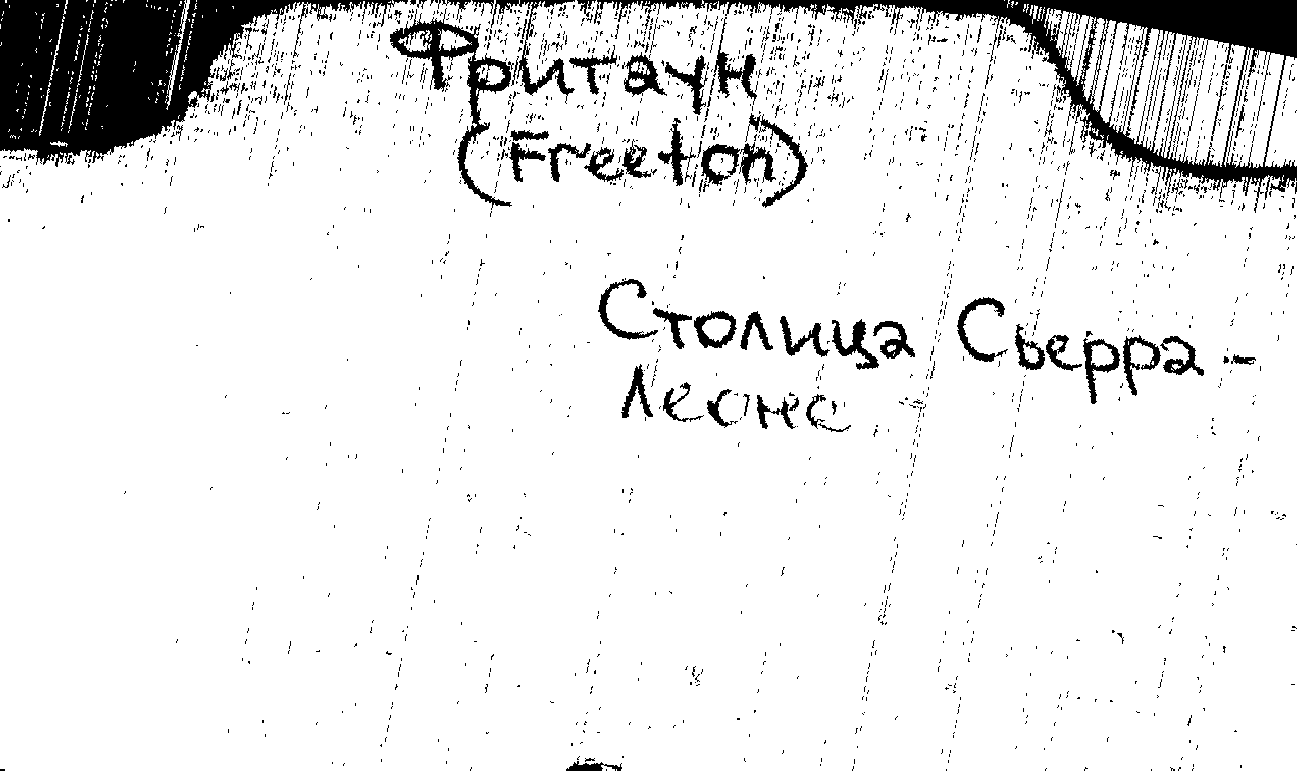 Фритаун
(Freeton)
Столица Сьерра-
Леоне